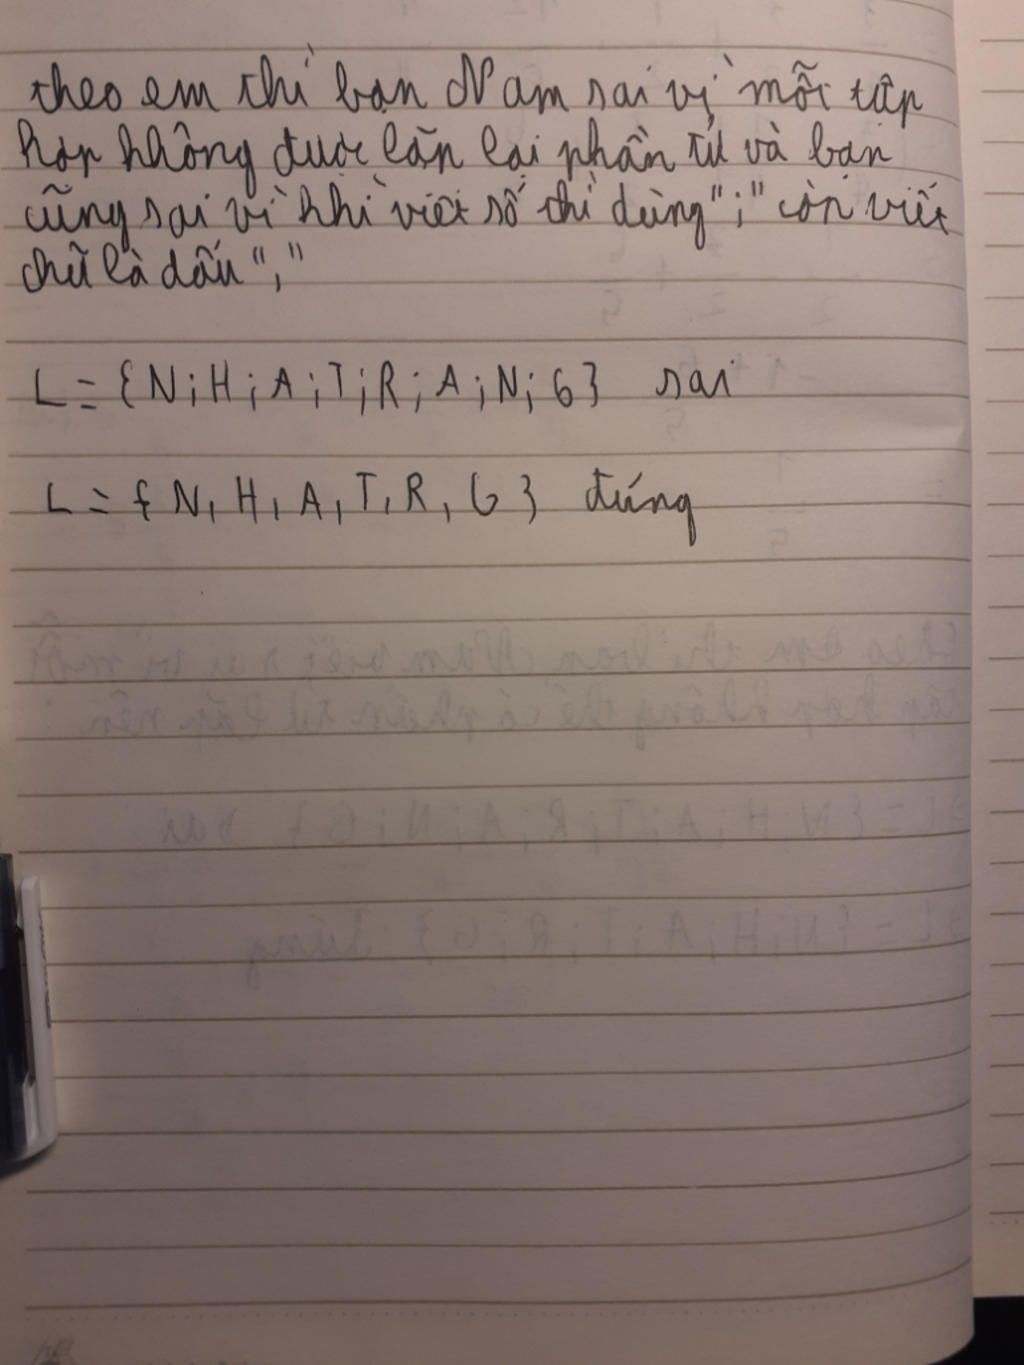 theo em thì bạn Nam sai vì mỗi tập
hợp không được lặp lại phần tử và bạn
cũng sai vì khi viết số thì dùng ";" còn viết
chữ là dấu ","
L = {N; H; A; T; R; A; N; G} sai
L = {N, H, A, T, R, G} đúng